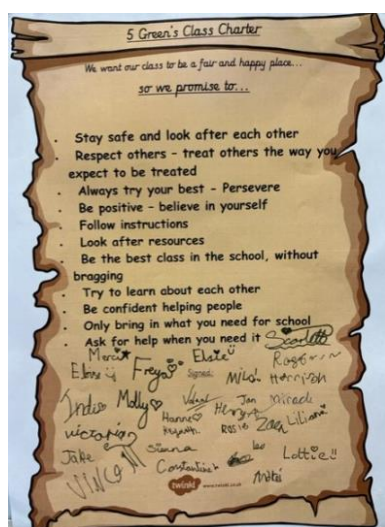 5 Green's Class Charter
We want our class to be a fair and happy place...
so we promise to...
. Stay safe and look after each other
. Respect others - treat others the way you
expect to be treated
. Always try your best - Persevere
. Be positive - believe in yourself
. Follow instructions
. Look after resources
. Be the best class in the school, without
bragging
. Try to learn about each other
. Be confident helping people
. Only bring in what you need for school
. Ask for help when you need it Scarlett
Elsie
Freya Signed: Milo Harrison
Indie Molly
Jan
Victoria Hanne Rosie Zac Liliana
Jake Sienna Leo Lottie
Constantine
twinkl www.twinkl.co.uk